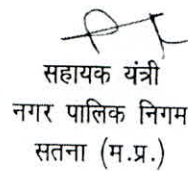 सहायक यंत्री
नगर पालिक निगम
सतना (म.प्र.)